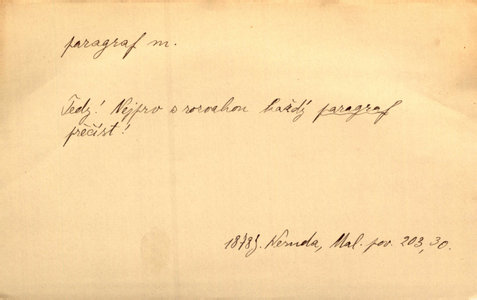 paragraf m.
Tedy! Nejprv s rozvahou každý paragraf
přečíst!
1878J. Neruda, Mal. pov. 203, 30.